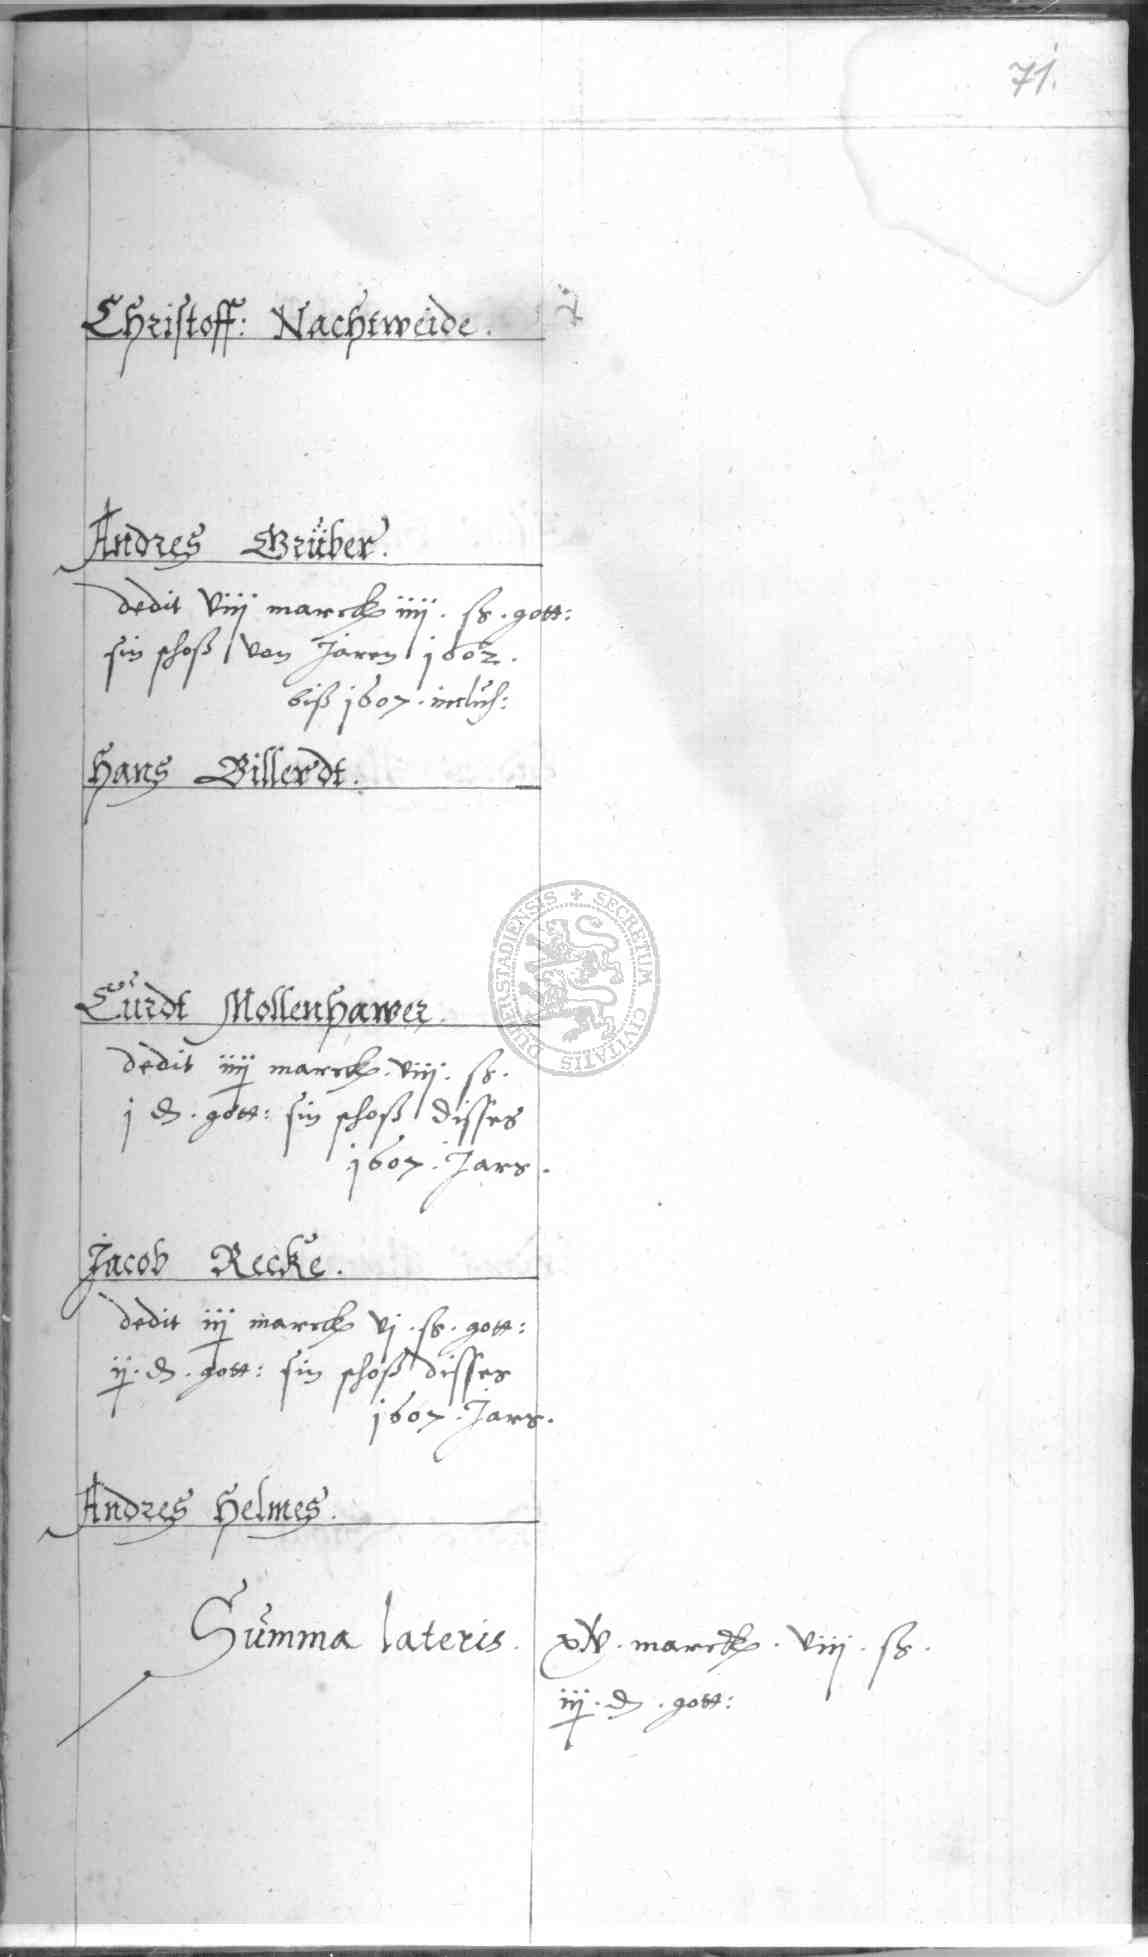 71.
Christoff: Nachtweide.
Andres Grüber.
dedit viij marck iiij. ß. gott:
sin schoß von Jaren 1602.
biß 1607. inclus:
Hans Billerdt.
Curdt Mollenhawer.
dedit iiij marck. viij. ß.
j ₰. gott: sin schoß disses
1607. Jars.
Jacob Recke.
dedit iij marck vj. ß. gott:
ij. ₰. gott: sin schoß disses
1607. Jars.
Andres Helmes.
Summa lateris. xv. marck. viij. ß.
iij. ₰. gott:
SECRETUM CIVITATIS DUDERSTADIENSIS